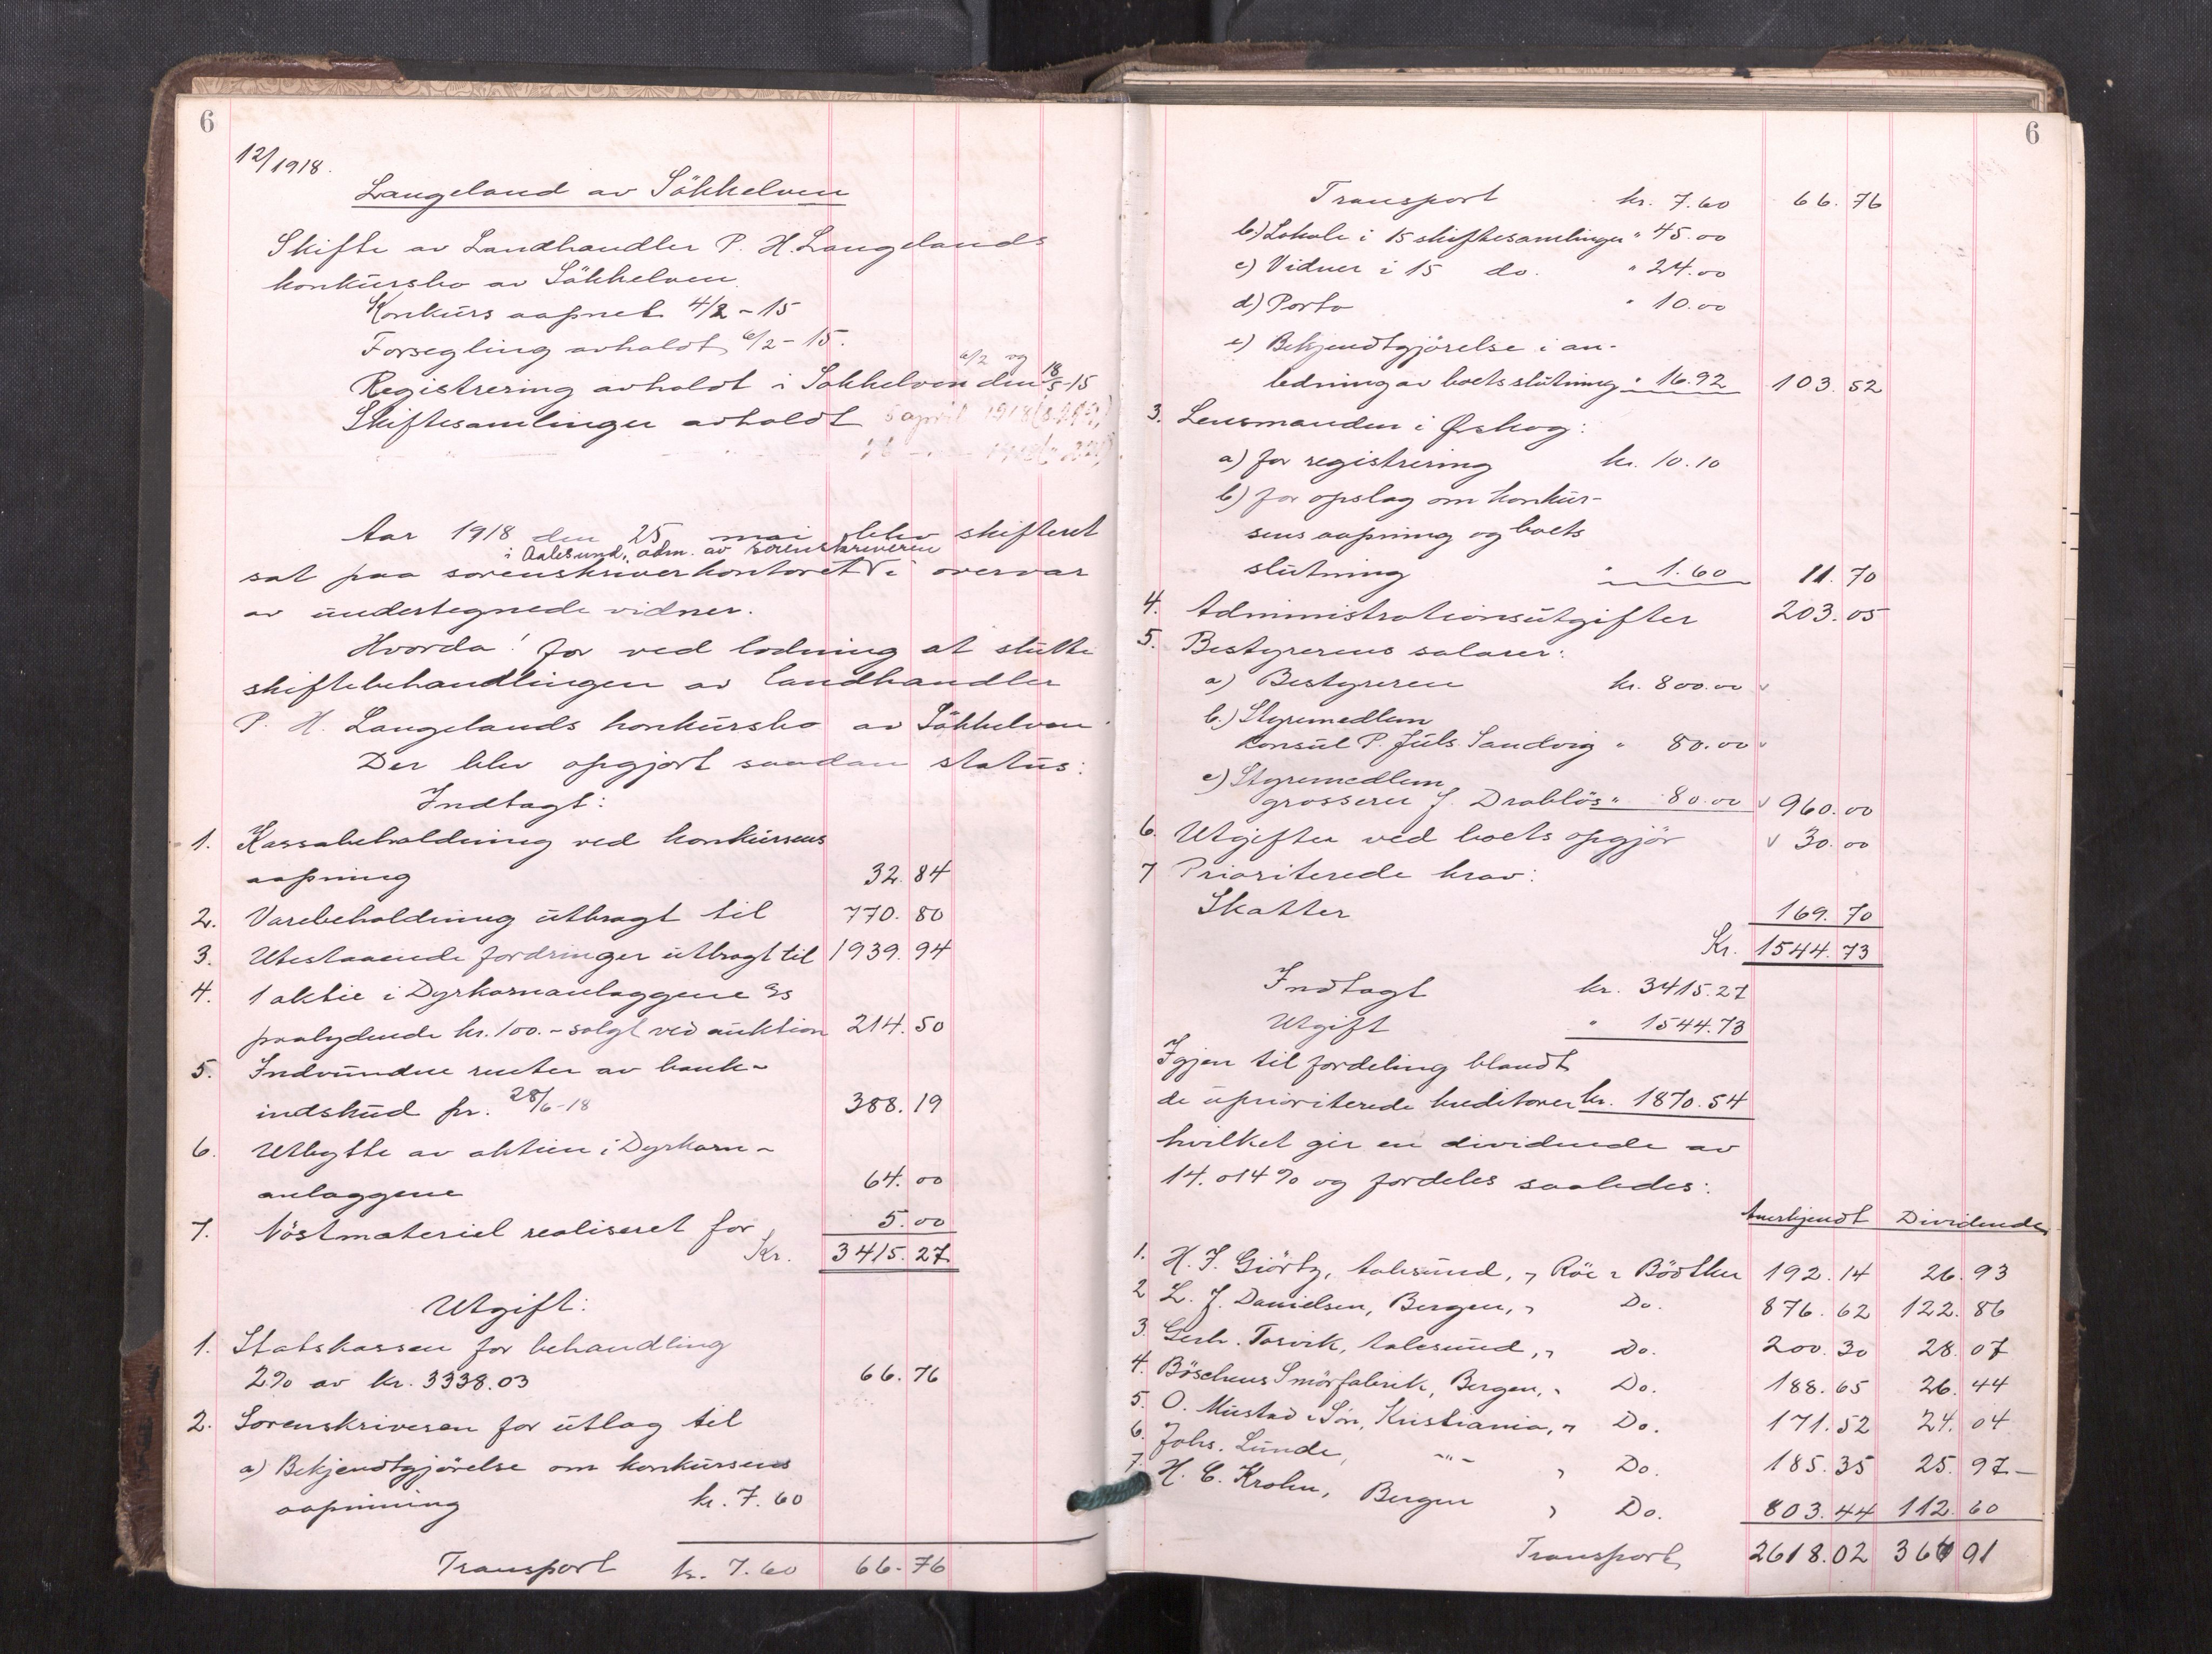 6
12/1918.
Langeland av Sökkelven
Skifte av Landhandler P. H. Langelands
konkursbo av Sökkelven.
Konkurs aapnet 4/2 - 15
Forsegling avholdt 6/2 - 15.
6/2 og
Registrering avholdt i Sökkelven den 18/5 -15
Skiftesamlinger avholdt 5 april 1918
Aar 1918 den 25 mai blev skifteret
i Aalesund, adm. av sorenskriveren
sat paa sorenskriverkontoret V i overvær
av undertegnede vidner.
Hvorda! for ved lodning at slutte
skiftebehandlingen av landhandler
P. H. Langelands konkursbo av Sökkelven.
Der blev opgjort saadan status:
Indtægt:
1. Kassabeholdning ved konkursens
aapning 32.84
2. Varebeholdning utbragt til 770.80
3. Utestaaende fordringer utbragt til 1939.94
4. 1 aktie i Dyrkornanlæggene A/s
paalydende kr. 100.- solgt ved auktion 214.50
5. Indvundne renter av bank-
indskud pr. 28/6-18 388.19
6. Utbytte av aktien i Dyrkorn-
anlæggene 64.00
7. Nöstmateriel realiseret for 5.00
Kr. 3415.27
Utgift:
1. Statskassen for behandling
2% av kr. 3338.03 66.76
2. Sorenskriveren for utlæg til
a) Bekjendtgjörelse om konkursens
aapning kr. 7.60
Transport kr. 7.60 66.76
6
Transport kr. 7.60 66.76
b.) Lokale i 15 skiftesamlinger " 45.00
c) Vidner i 15 do. " 24.00
d) Porto " 10.00
e) Bekjendtgjörelse i an-
ledning av boets slutning " 16.92 103.52
3. Lensmanden i Ørskog:
a) for registrering kr. 10.10
b) for opslag om konkur-
sens aapning og boets
slutning " 1.60 11.70
4. Administrationsutgifter 203.05
5. Bestyrerens salærer:
a) Bestyreren kr. 800.00 v
b.) Styremedlem
konsul P. Juls. Sandvig " 80.00 v
c) Styremedlem
grosserer J. Drablös " 80.00 v 960.00
6. Utgifter ved boets opgjör v 30.00
7 Prioriterede krav:
Skatter 169.70
Kr. 1544.73
Indtægt kr. 3415.27
Utgift " 1544.73
Igjen til fordeling blandt
de uprioriterede kreditorer kr. 1870.54
hvilket gir en dividende av
14.014% og fordeles saaledes:
Anerkjendt Dividende
1. H. J. Giörtz, Aalesund, v Röe & Bödtker 192.14 26.93
2 L. J. Danielsen, Bergen, v Do. 876.62 122.86
3. Gerh. Torvik, Aalesund, v Do. 200.30 28.07
4. Böschens Smörfabrik, Bergen, v Do. 188.65 26.44
5. O. Mustad & Sön, Kristiania, v Do. 171.52 24.04
6. Johs. Lunde, -"- v Do. 185.35 25.97 -
7. H. C. Krohn, Bergen v Do. 803.44 112.60
Transport 2618.02 366 91